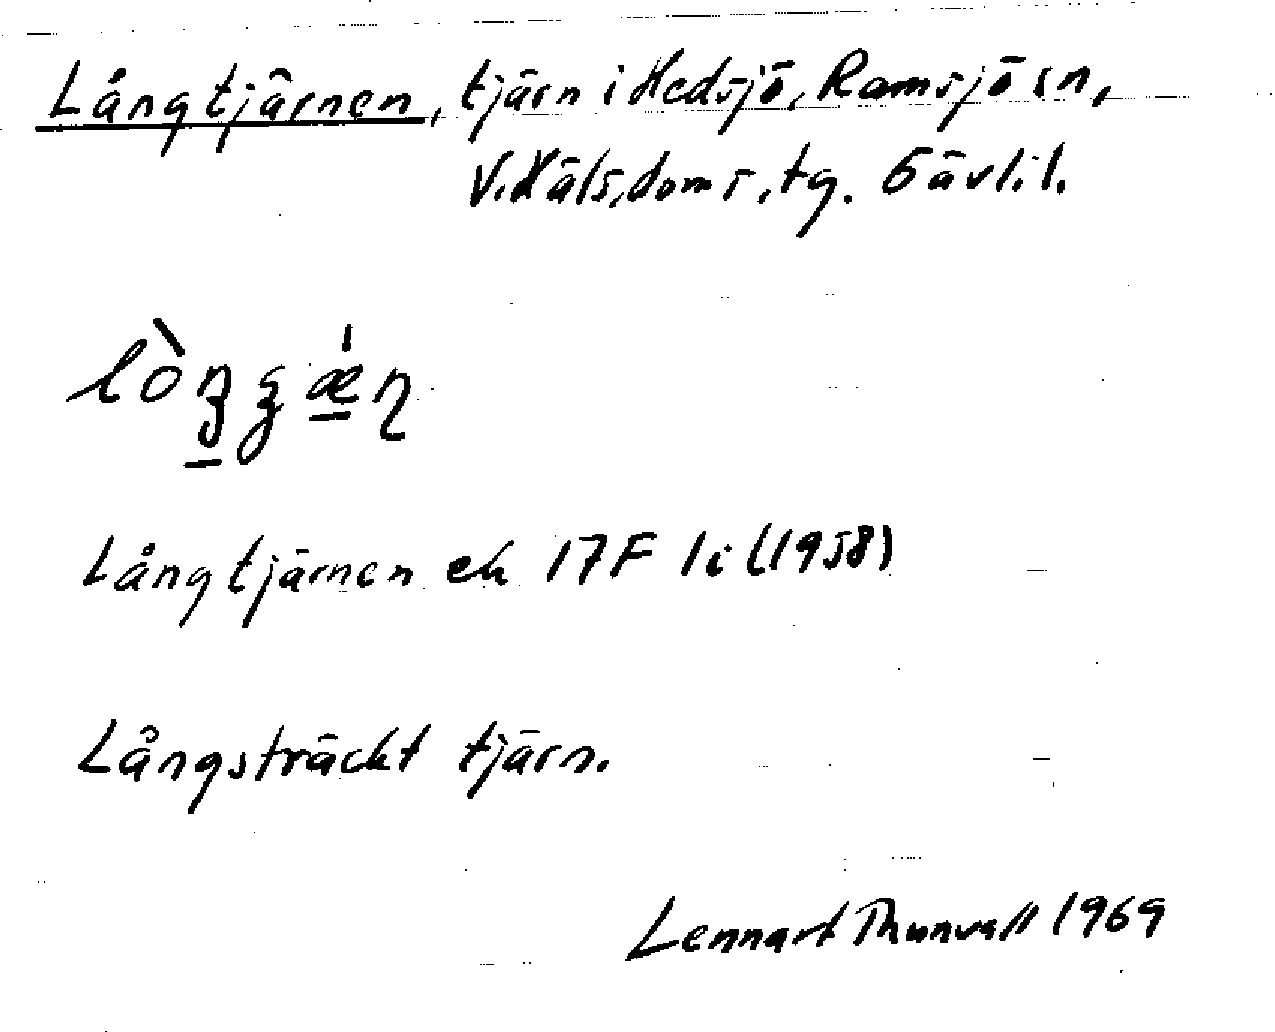 Långtjärnen, tjärn i Hedsjö, Ramsjö sn,
V. Häls, doms, tg. Gävl. l.
Långtjärnen ek 17F 1i (1958)
Långsträckt tjärn.
Lennart Thunvall 1969